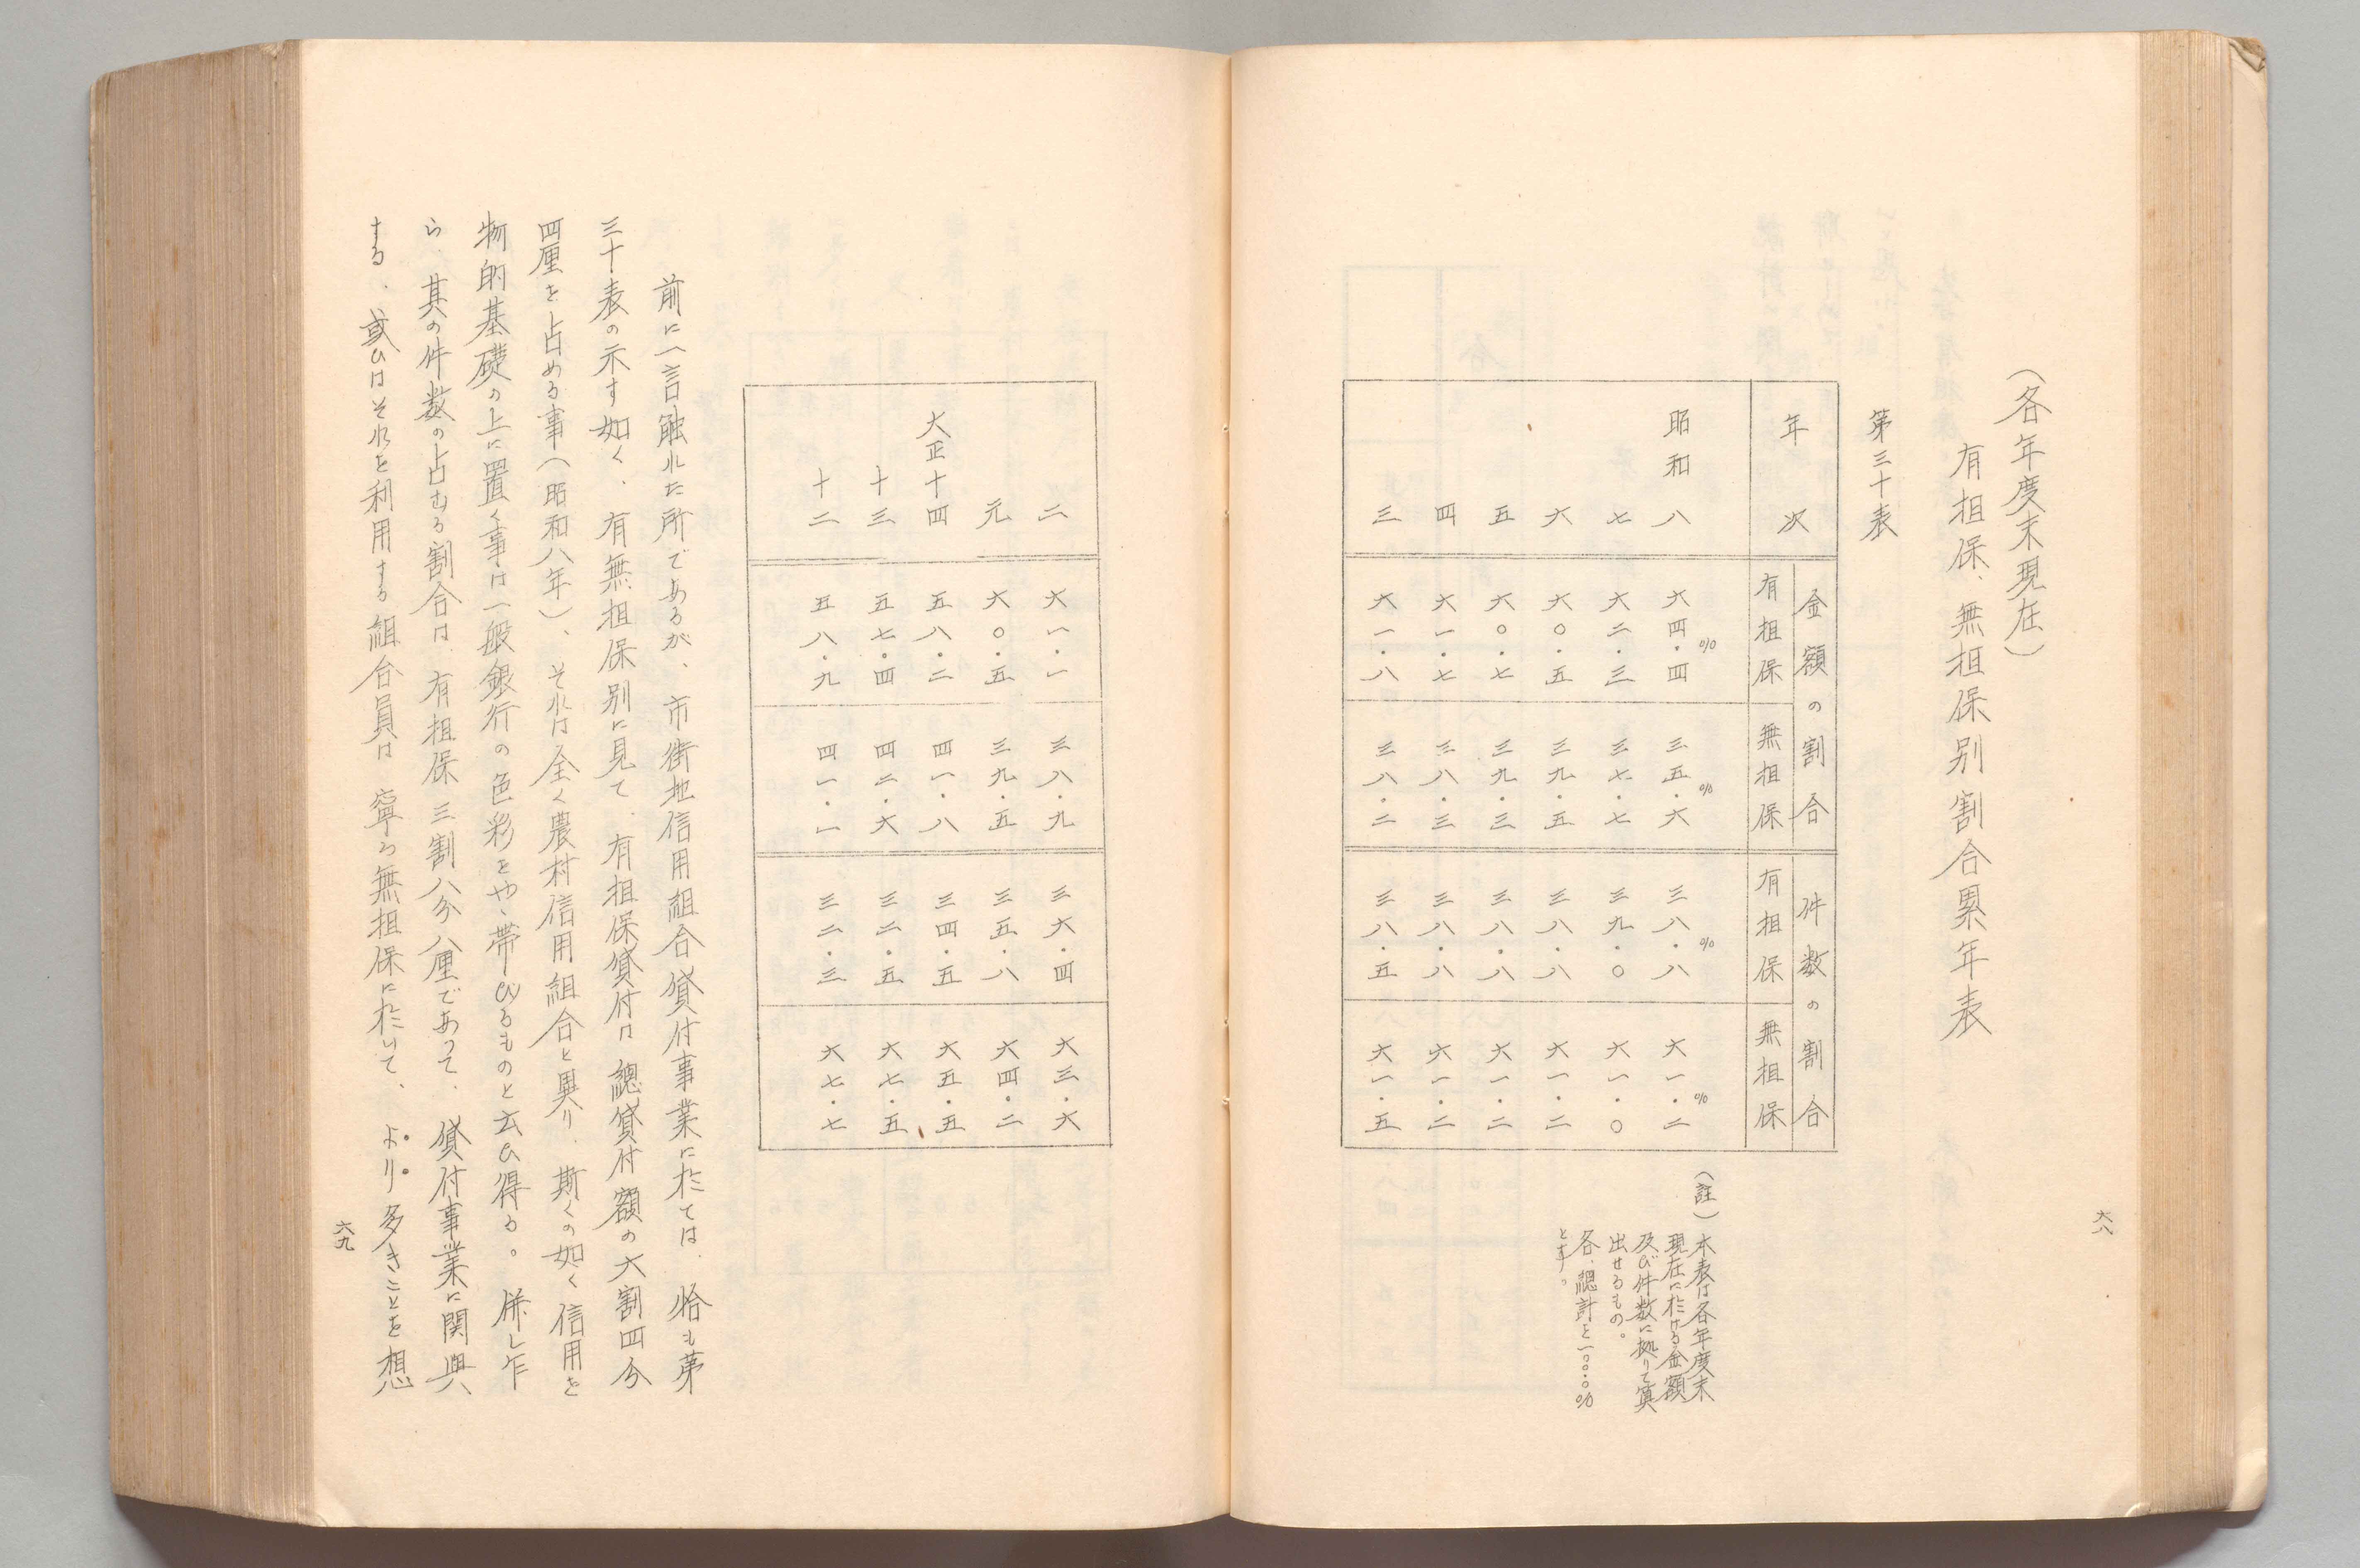 (各年度末現在)
有担保、無担保別割合累年表
第三十表
年次
金額の割合
有担保
無担保
件数の割合
有担保
無担保
昭和八 六四・四% 三五・六% 三八・八% 六一・二%
七 六二・三 三七・七 三九・〇 六一・〇
六 六〇・五 三九・五 三八・八 六一・二
五 六〇・七 三九・三 三八・八 六一・二
四 六一・七 三八・三 三八・八 六一・二
三 六一・八 三八・二 三八・五 六一・五
(註)本表は各年度末
現在に於ける金額
及び件数に拠りて算
出せるもの。
各、總計を一〇〇・〇%
とす。
六八
二 六一・一 三八・九 三六・四 六三・六
元 六〇・五 三九・五 三五・八 六四・二
大正十四 五八・二 四一・八 三四・五 六五・五
十三 五七・四 四二・六 三二・五 六七・五
十二 五八・九 四一・一 三二・三 六七・七
前に一言触れた所であるが、市街地信用組合貸付事業に於ては、恰も第
三十表の示す如く、有無担保別に見て、有担保貸付は總貸付額の六割四分
四厘を占める事(昭和八年)、それは全く農村信用組合と異り、斯くの如く信用を
物的基礎の上に置く事は一般銀行の色彩をやゝ帯びるものと云ひ得る。併し乍
ら、其の件数の占むる割合は、有担保三割八分八厘であつて、貸付事業に関與
する、或ひはそれを利用する組合員は、寧ろ無担保に於いて、より多きことを想
六九